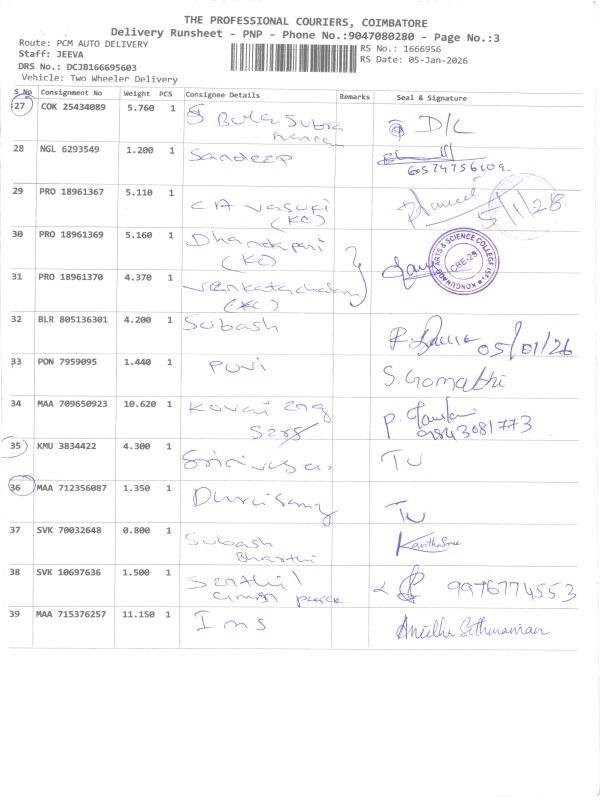 THE PROFESSIONAL COURIERS, COIMBATORE
Delivery Runsheet - PNP - Phone No.:9047080280 - Page No.:3
Route: PCM AUTO DELIVERY
RS No.: 1666956
Staff: JEEVA
RS Date: 05-Jan-2026
DRS No.: DCJB166695603
Vehicle: Two Wheeler Delivery
S No Consignment No Weight PCS Consignee Details Remarks Seal & Signature
27 COK 25434089 5.760 1 Bala Subra D/C
28 NGL 6293549 1.200 1 Sandeep
6574756109.
29 PRO 18961367 5.110 1 CA Vasuki
(KC) 5/1/28
30 PRO 18961369 5.160 1 Dhandapani
(KC)
ARTS & SCIENCE COLLEGE CBE-29
31 PRO 18961370 4.370 1 Venkatachalam
(KC)
32 BLR 805136301 4.200 1 Subash
05/01/26
33 PON 7959095 1.440 1 Puvi S. Gomathi
34 MAA 709650923 10.620 1 Kovai Eng
9843081773
35 KMU 3834422 4.300 1 TU
36 MAA 712356087 1.350 1 Duraisamy TU
37 SVK 70032648 0.800 1 Subash KavithaSree
Bharthi
38 SVK 10697636 1.500 1 Senthil 9976774553
39 MAA 715376257 11.150 1 Ims